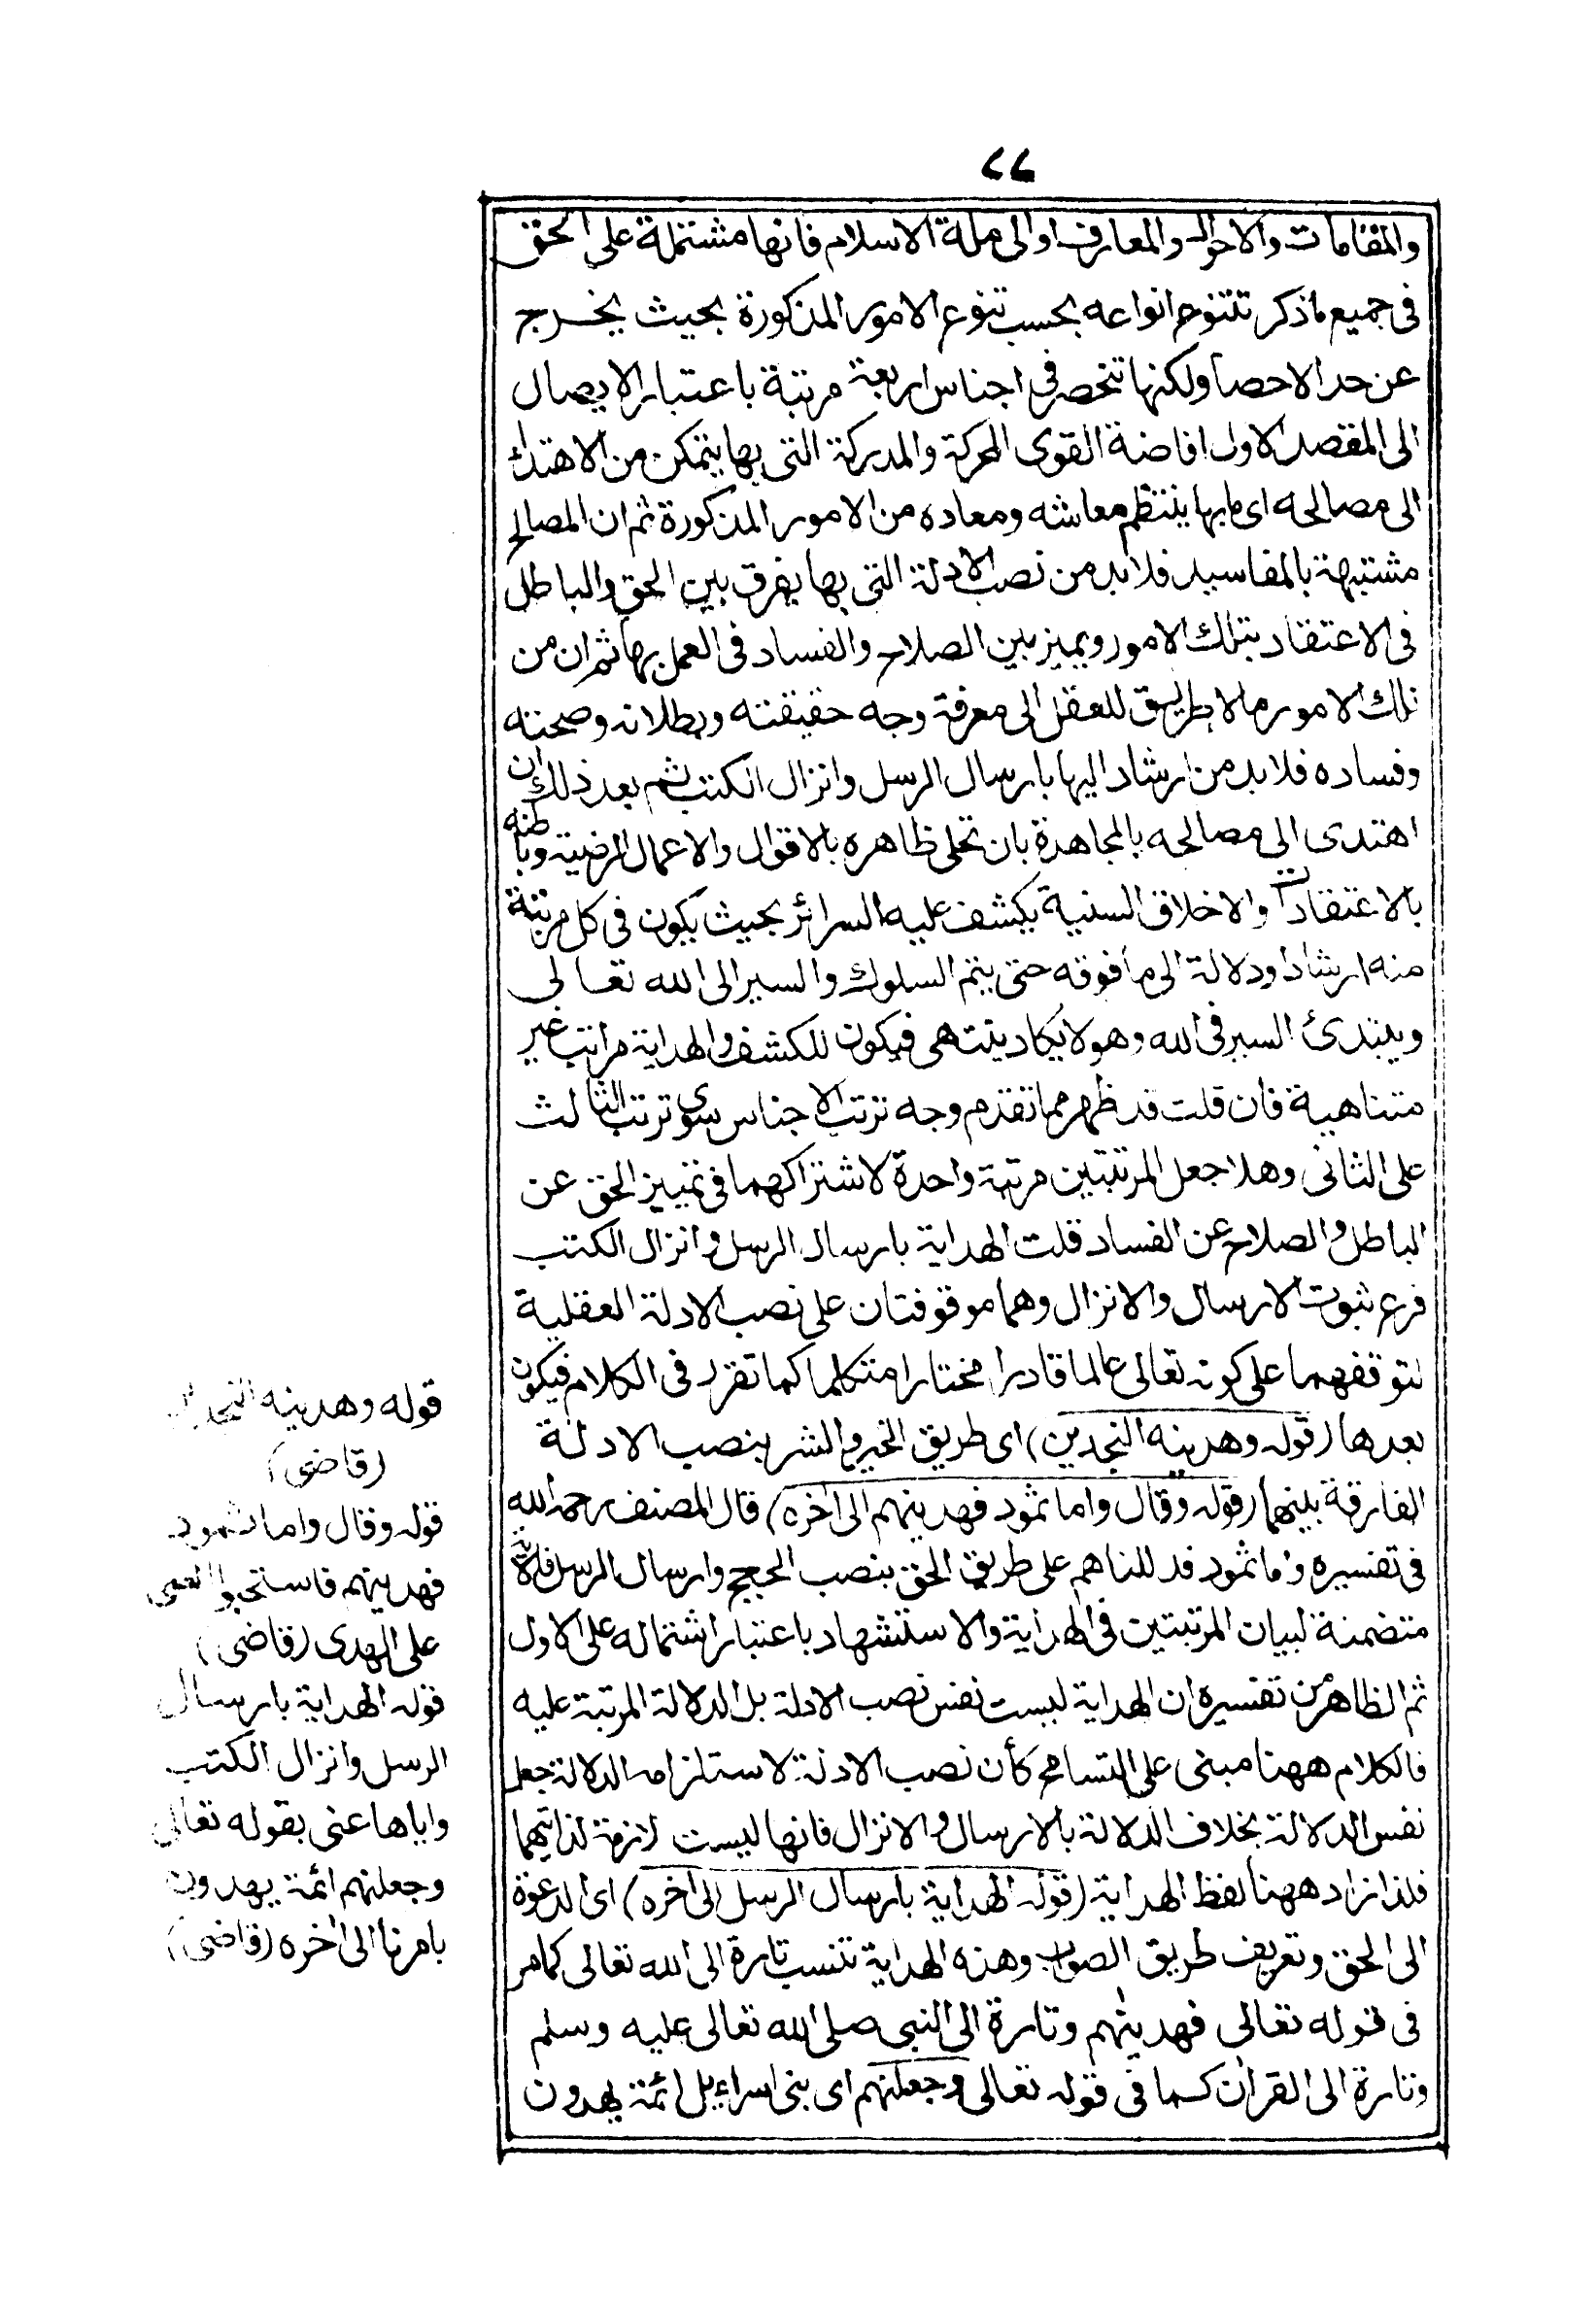 ٧٧
والمقامات والاحوال والمعارف او الى ملة الاسلام فانها مشتملة على الحق
فى جميع ما ذكر تتنوع انواعه بحسب تنوع الامور المذكورة بحيث يخرج
عن حد الاحصا ولكنها تنحصر فى اجناس اربعة مرتبة باعتبار الايصال
الى المقصد الاول افاضة القوى المحركة والمدركة التى بها يتمكن من الاهتداء
الى مصالحه اى ما بها ينتظم معاشه ومعاده من الامور المذكورة ثم ان المصالح
مشتبهة بالمفاسيد فلا بد من نصب الادلة التى بها يفرق بين الحق والباطل
فى الاعتقاد بتلك الامور ويميز بين الصلاح والفساد فى العمل بها ثم ان من
تلك الامور ما لا طريق للعقل الى معرفة وجه حقيقته وبطلانه وصحته
وفساده فلا بد من ارشاد اليها بارسال الرسل وانزال الكتب ثم بعد ذلك ان
اهتدى الى مصالحه بالمجاهدة بان تحلى ظاهره بالاقوال والاعمال المرضية وباطنه
بالاعتقادات والاخلاق السنية يكشف عليه السرائر بحيث يكون فى كل مرتبة
منه ارشادا ودلالة الى ما فوقه حتى يتم السلوك والسير الى الله تعالى
ويبتدئ السير فى الله وهو لا يكاد ينتهى فيكون للكشف والهداية مراتب غير
متناهية فان قلت قد ظهر مما تقدم وجه ترتب الاجناس سوى ترتب الثالث
على الثانى وهلا جعل المرتبتين مرتبة واحدة لاشتراكهما فى تمييز الحق عن
الباطل والصلاح عن الفساد قلت الهداية بارسال الرسل وانزال الكتب
فرع ثبوت الارسال والانزال وهما موقوفتان على نصب الادلة العقلية
لتوقفهما على كونه تعالى عالما قادرا مختارا متكلما كما تقرر فى الكلام فيكون
بعدها (قوله وهدينه النجدين) اى طريق الخير والشر بنصب الادلة
الفارقة بينهما (قوله وقال واما ثمود فهدينهم الى اخره) قال المصنف رحمه الله
فى تفسيره واما ثمود فدللناهم على طريق الحق بنصب الحجج وارسال الرسل فالاية
متضمنة لبيان المرتبتين فى الهداية والاستشهاد باعتبار اشتماله على الاول
ثم الظاهر من تفسيره ان الهداية ليست نفس نصب الادلة بل الدلالة المرتبة عليه
فالكلام ههنا مبنى على التسامح كأن نصب الادلة لاستلزامه الدلالة جعل
نفس الدلالة بخلاف الدلالة بالارسال والانزال فانها ليست لازمة لذاتيهما
فلذا زاد ههنا لفظ الهداية (قوله الهداية بارسال الرسل الى اخره) اى الدعوة
الى الحق وتعريف طريق الصواب وهذه الهداية تنسب تارة الى الله تعالى كما مر
فى قوله تعالى فهدينهم وتارة الى النبى صلى الله تعالى عليه وسلم
وتارة الى القران كما فى قوله تعالى وجعلنهم اى بنى اسراءيل ائمة يهدون
قوله وهدينه النجدين
(قاضى)
قوله وقال واما ثمود
فهدينهم فاستحبوا العمى
على الهدى (قاضى)
قوله الهداية بارسال
الرسل وانزال الكتب
واياها عنى بقوله تعالى
وجعلنهم ائمة يهدون
بامرنا الى اخره (قاضى)